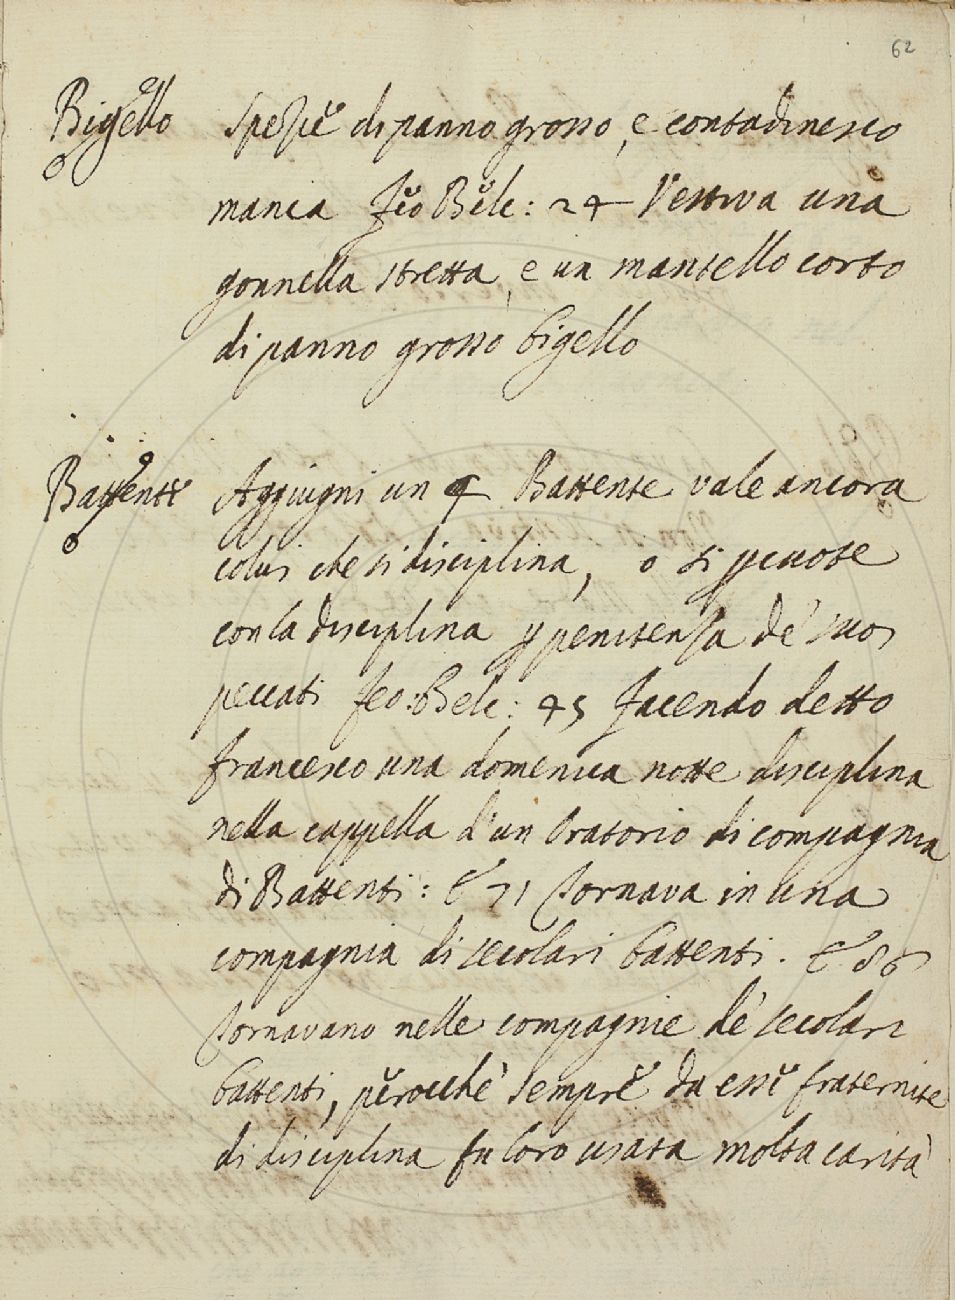 62
Bigello Spezie di panno grosso, e contadinesco
manca feo Belc: 24 Vestiva una
gonnella stretta, e un mantello corto
di panno grosso bigello
Battenti Aggiugni un § Battente vale ancora
colui che si disciplina, o si percuote
con la disciplina p penitenza de' suoi
peccati feo: Belc: 45 facendo detto
francesco una domenica notte disciplina
nella cappella d'un Oratorio di compagnia
di Battenti: E 71 Tornava in una
compagnia di secolari battenti. E 86
Tornavano nelle compagnie de' secolari
battenti, perocchè sempre da esse fraternite
di disciplina fu loro usata molta carità